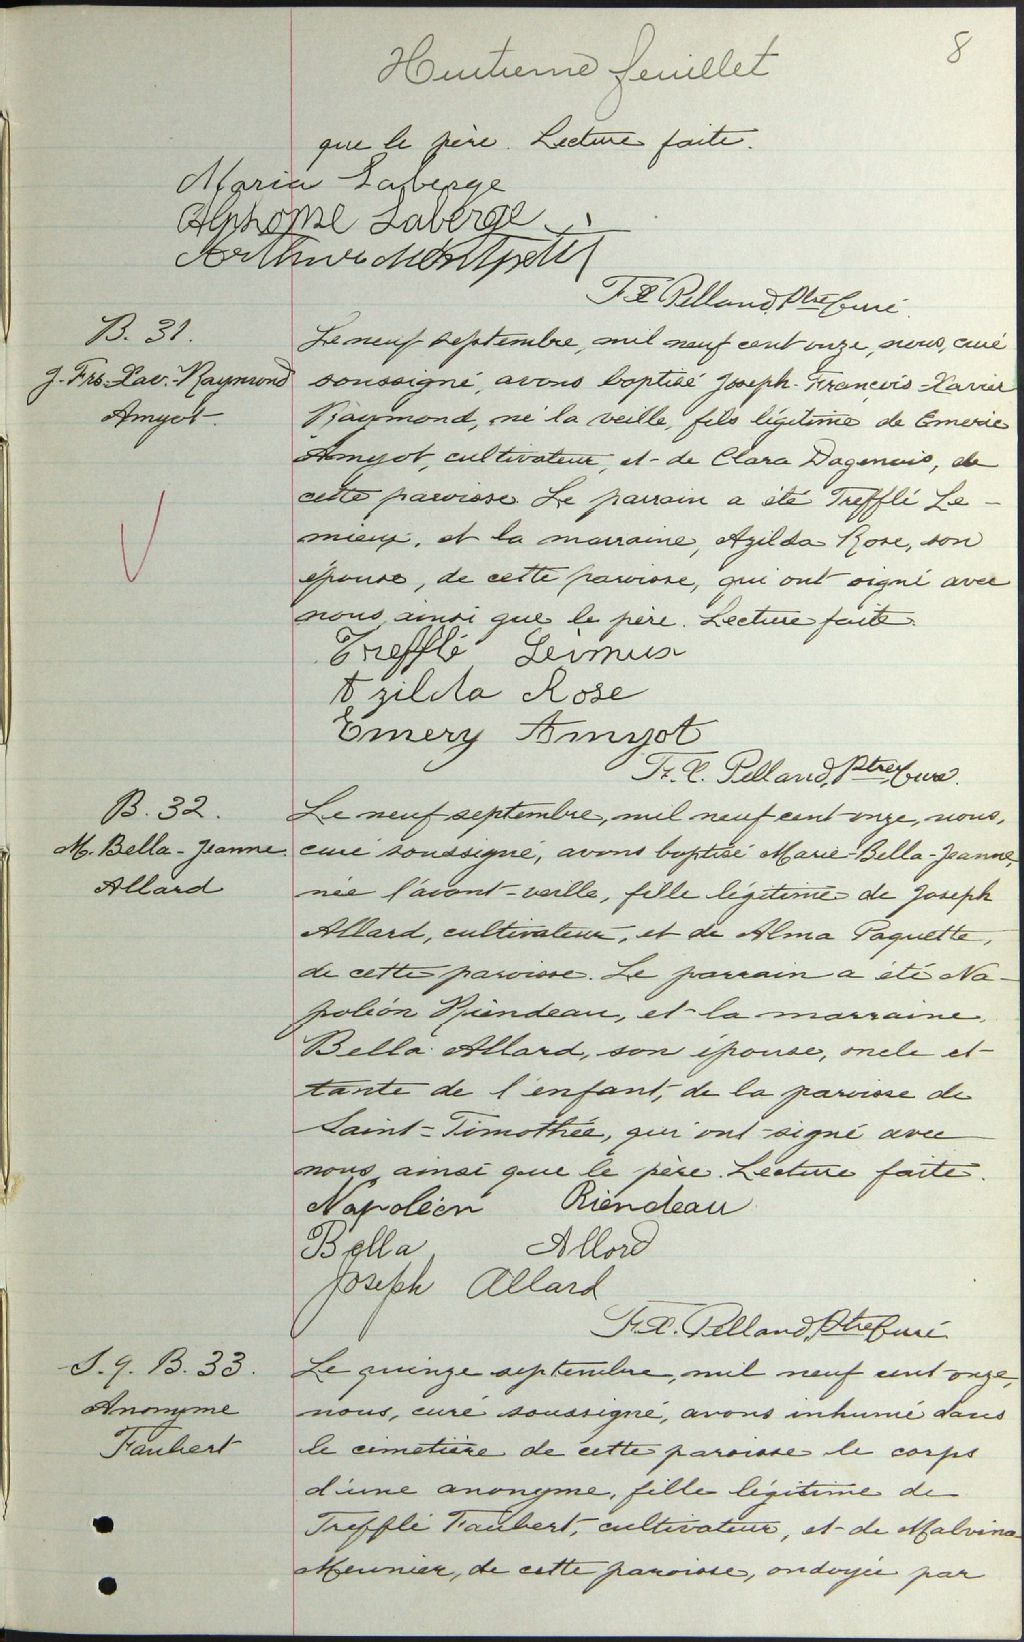 Huitieme feuillet
8
que le père. Lecture faite.
Maria Laberge
Alphonse Laberge
Arthur Montpetit
F. X. Pelland, Ptre Curé.
B. 31.
J. Frs-Xav.-Raymond
Amyot.
Le neuf septembre, mil neuf cent onze, nous, curé
soussigné, avons baptisé Joseph-François-Xavier
Raymond, né la veille, fils légitime de Emerie
Amyot, cultivateur, et de Clara Dagenais, de
cette paroisse. Le parrain a été Trefflé Le-
mieux, et la marraine, Azilda Rose, son
épouse, de cette paroisse, qui ont signé avec
nous, ainsi que le père. Lecture faite.
Trefflé Leimux
Azilda Rose
Emery Amyot
F. X. Pelland, Ptre, Curé.
B. 32.
M. Bella-Jeanne
Allard
Le neuf septembre, mil neuf cent onze, nous,
curé soussigné, avons baptisé Marie-Bella-Jeanne,
née l'avant-veille, fille légitime de Joseph
Allard, cultivateur, et de Alma Paquette,
de cette paroisse. Le parrain a été Na-
poléon Riendeau, et la marraine,
Bella Allard, son épouse, oncle et
tante de l'enfant, de la paroisse de
Saint-Timothée, qui ont signé avec
nous, ainsi que le père. Lecture faite.
Napoléon Riendeau
Bella Allard
Joseph Allard
F. X. Pelland, Ptre Curé
S. 9. B. 33.
Anonyme
Faubert
Le quinze septembre, mil neuf cent onze,
nous, curé soussigné, avons inhumé dans
le cimetière de cette paroisse le corps
d'une anonyme, fille légitime de
Trefflé Faubert, cultivateur, et de Malvina
Meunier, de cette paroisse, ondoyée par